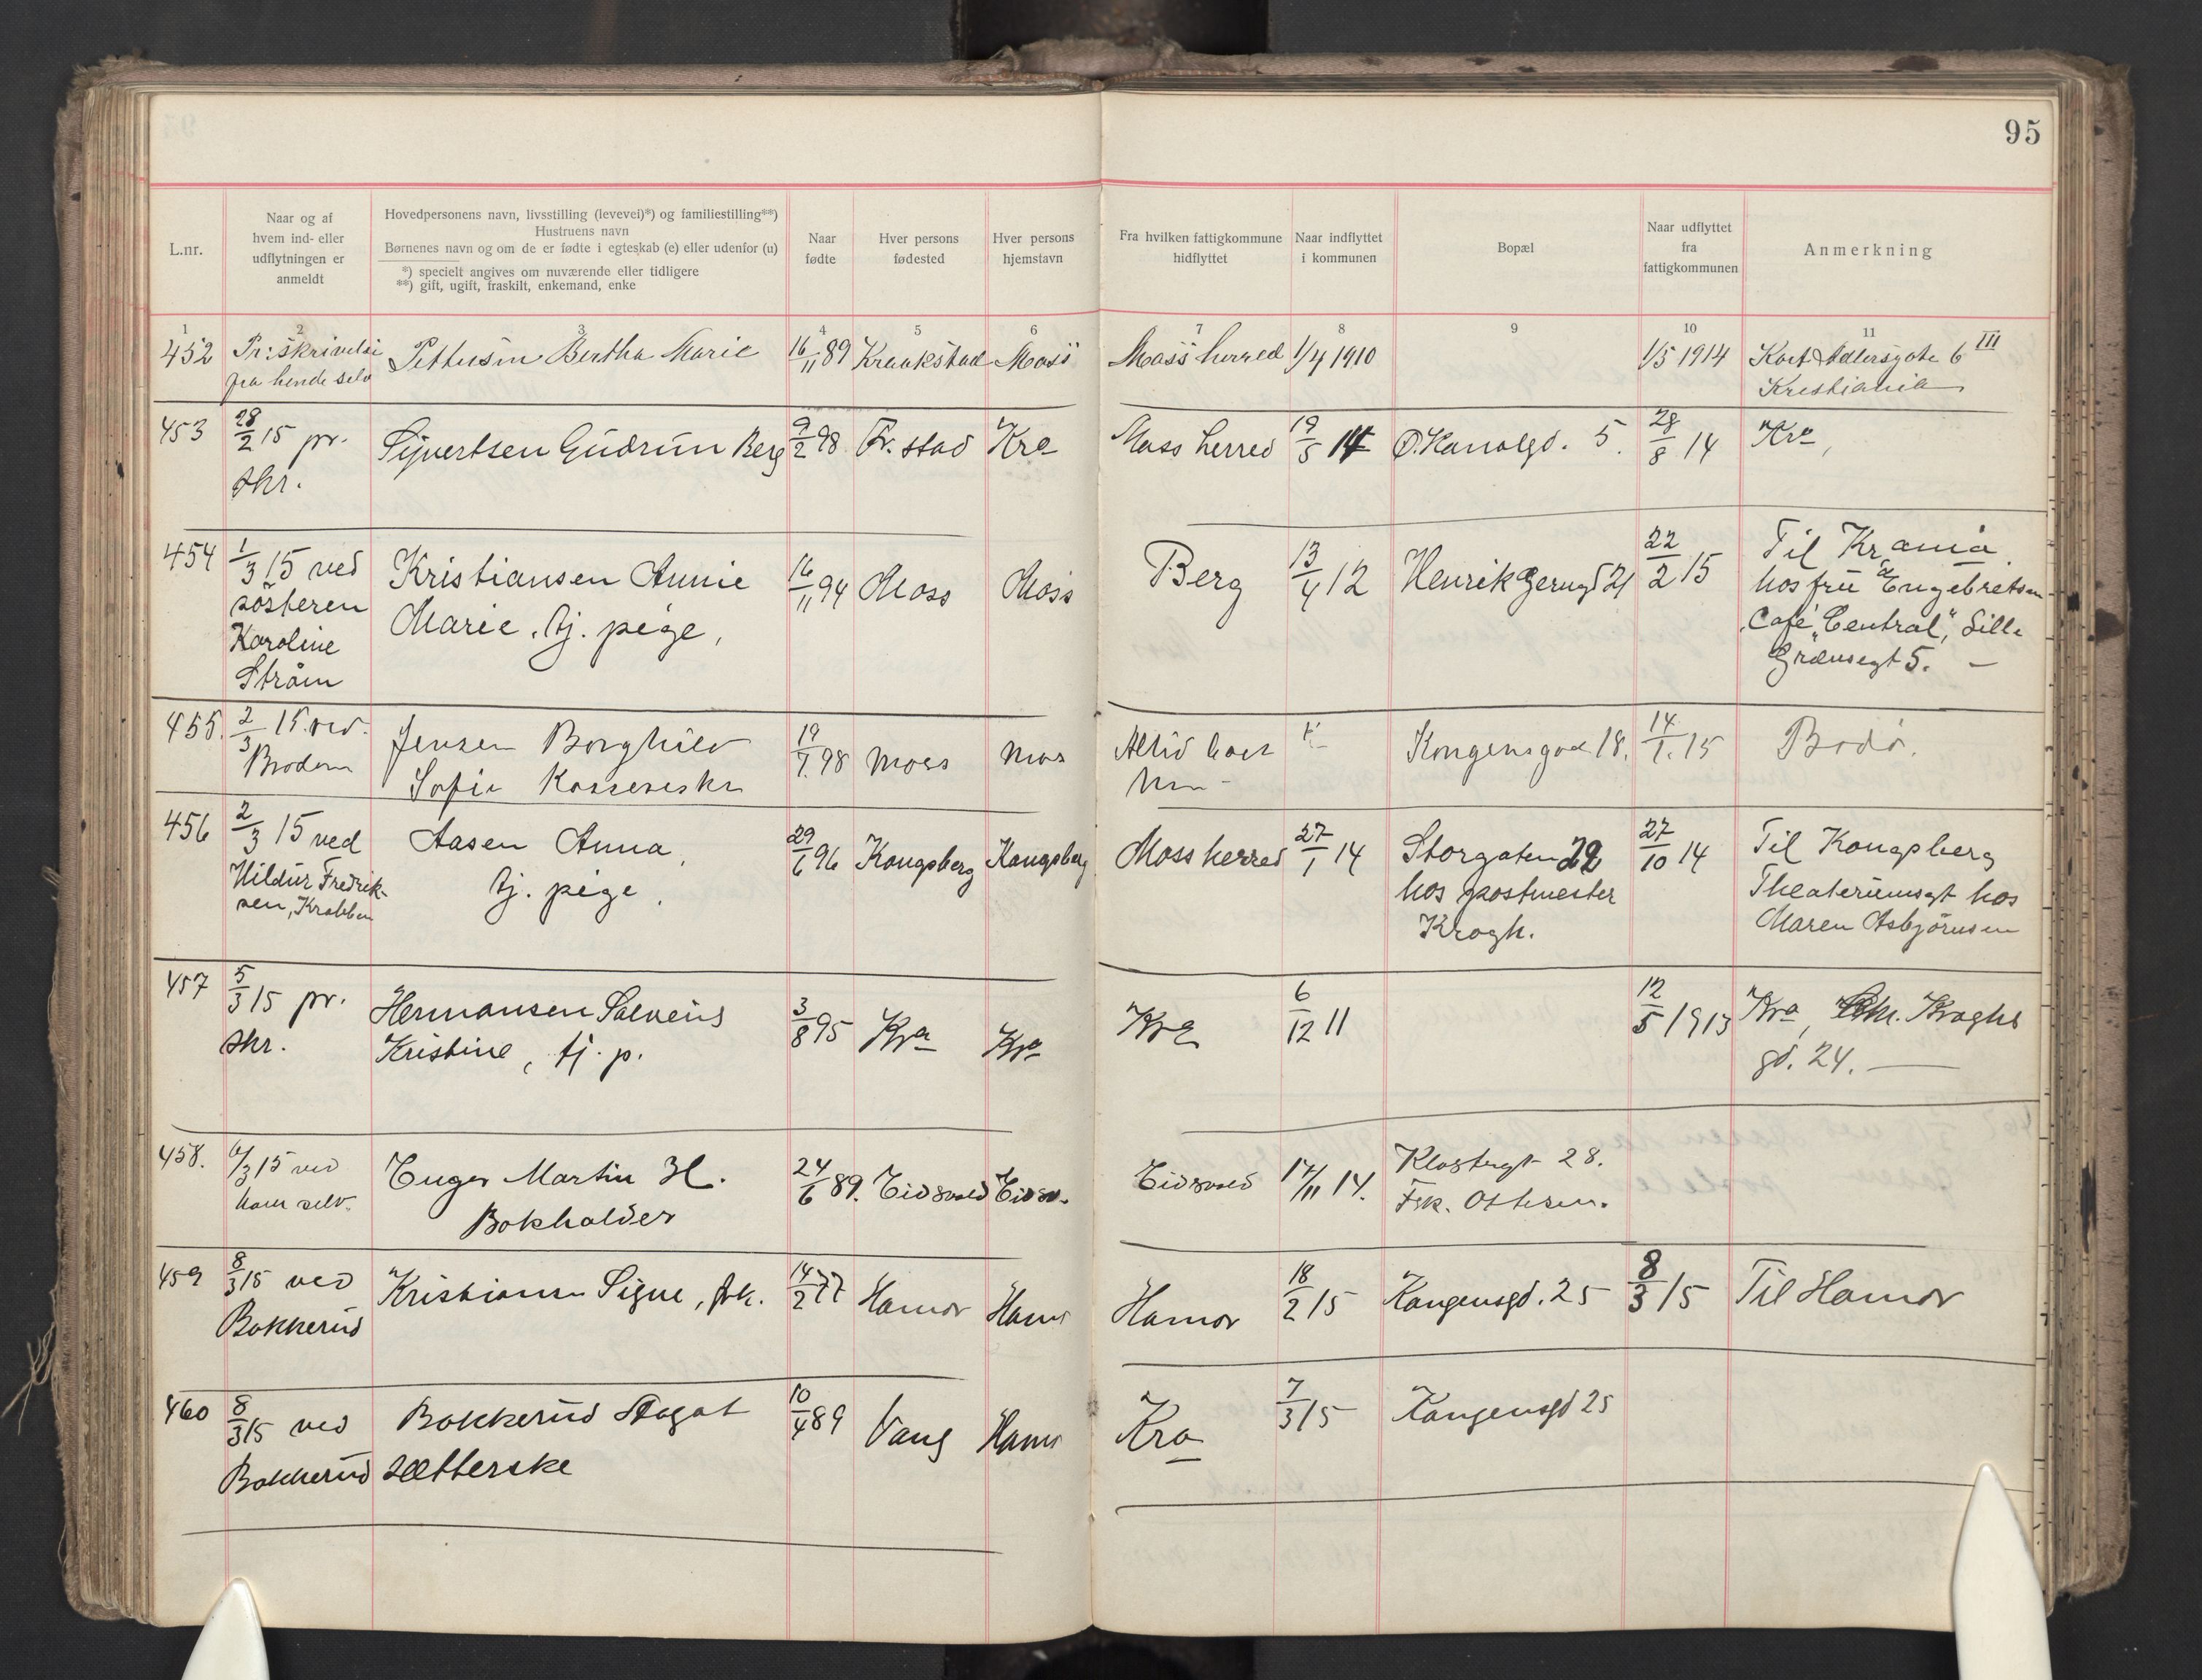 95
L.nr.
Naar og af
hvem ind- eller
udflytningen er
anmeldt
Hovedpersonens navn, livsstilling (levevei)*) og familiestilling**)
Hustruens navn
Børnenes navn og om de er fødte i egteskab (e) eller udenfor (u)
*) specielt angives om nuværende eller tidligere
**) gift, ugift, fraskilt, enkemand, enke
Naar
fødte
Hver persons
fødested
Hver persons
hjemstavn
Fra hvilken fattigkommune
hidflyttet
Naar indflyttet
i kommunen
Bopæl
Naar udflyttet
fra
fattigkommunen
Anmerkning
1 2 3 4 5 6 7 8 9 10 11
452 Pr: skrivelse Bertha Marie 16/11 89 Kraakstad Moss Moss herred 1/4 1910 1/5 1914 Kort Adlersgate 6 III
fra hende selv Kristiania
453 28/2 15 pr. Sijvertsen Gudrun Berg 9/2 98 Fr. stad Kra Moss herred 19/5 14 Ø. Kanalgd. 5. 28/8 14 Kra,
skr.
454 1/3 15 ved Kristiansen Annie 16/11 94 Moss Moss Berg 13/4 12 Henrik Gerngt 21 22/2 15 Til Krania
søsteren Marie, tj. pige, hos fru Engebretsen
Karoline Café "Central", Lille
Strøm Grænsegt 5. —
455. 2/3 15. ved. Jensen Borghild 19/1. 98 Moss Mos Altid boet Kongensgad 18. 14/1. 15 Bodø.
Brodern Sofie
456 2/3 15 ved Aasen Anna, 29/6 96 Kongsberg Kongsberg Moss herred 27/1 14 Storgaten 22 27/10 14 Til Kongsberg
Hildur Fredrik- tj. pige. hos postmester hos
sen, Krabben Krogh. Maren Asbjørnsen
457 5/3 15 pr. Hermansen Solveig 3/8 95 Kra Kra Kra 6/12 11 12/5 1913 Kra, Kroghs
skr. Kristine, tj. p. gd. 24. —
458. 6/3 15 ved Enger Martin H. 24/6 89. Eidsvold Eidsv. Eidsvold 17/11 14. Klostergt 28.
ham selv. Bokholder Frk. Ottesen.
459 8/3 15 ved Kristiansen Signe, frk. 14/2 77 Hamar Hamr Hamar 18/2 15 Kongensgd. 25 8/3 15 Til Hamar
Bakkerud
460 8/3 15 ved Bakkerud Dagot 10/4 89 Vang Hamr Kra 7/3 15 Kongensgd 25
Bakkerud sætterske